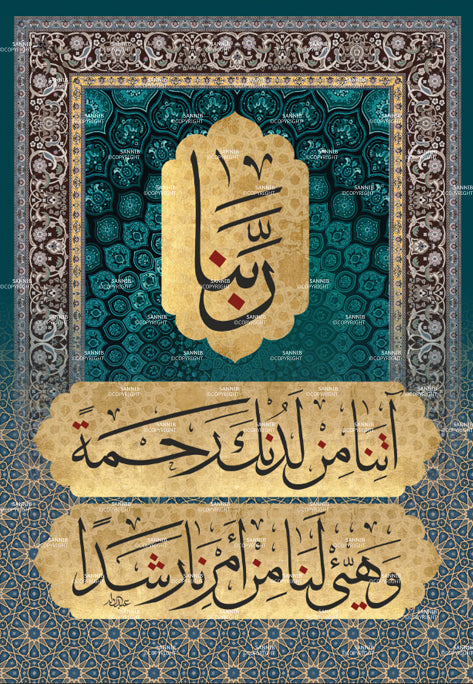 رَبَّنَا
آتِنَا مِن لَدُنكَ رَحْمَةً
وَهَيِّئْ لَنَا مِنْ أَمْرِنَا رَشَدًا
SANNIB
©COPYRIGHT